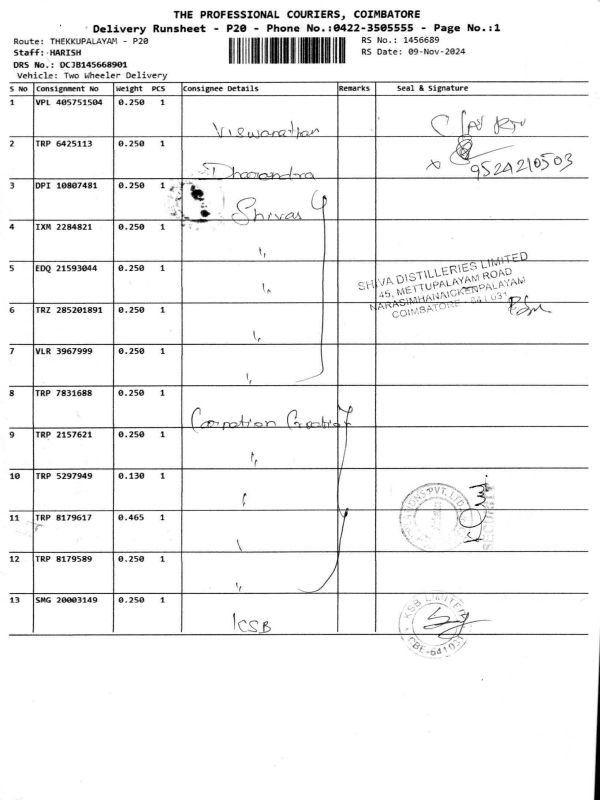 THE PROFESSIONAL COURIERS, COIMBATORE
Delivery Runsheet - P20 - Phone No.:0422-3505555 - Page No.:1
Route: THEKKUPALAYAM - P20
RS No.: 1456689
Staff: HARISH
RS Date: 09-Nov-2024
DRS No.: DCJB145668901
Vehicle: Two Wheeler Delivery
S No Consignment No Weight PCS Consignee Details Remarks Seal & Signature
1 VPL 405751504 0.250 1 Viswanathan
2 TRP 6425113 0.250 1 Dharandra 9524210503
3 DPI 10807481 0.250 1 Shivas
4 IXM 2284821 0.250 1 "
5 EDQ 21593044 0.250 1 "
SHIVA DISTILLERIES LIMITED
45, METTUPALAYAM ROAD
NARASIMHANAICKENPALAYAM
COIMBATORE - 641 031
6 TRZ 285201891 0.250 1 "
7 VLR 3967999 0.250 1 "
8 TRP 7831688 0.250 1 Carnation
9 TRP 2157621 0.250 1 "
10 TRP 5297949 0.130 1 "
11 TRP 8179617 0.465 1
PVT. LTD.
12 TRP 8179589 0.250 1 "
13 SMG 20003149 0.250 1 KSB
KSB LIMITED
CBE-641031